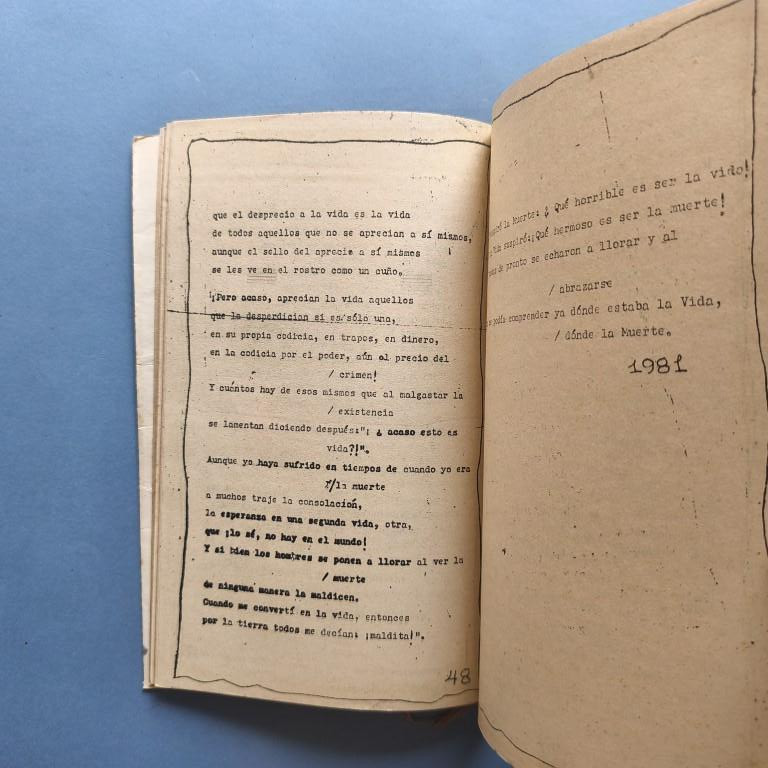 que el desprecio a la vida es la vida
de todos aquellos que no se aprecian a sí mismos,
aunque el sello del aprecio a sí mismos
se les ve en el rostro como un cuño.
¡Pero acaso, aprecian la vida aquellos
que la desperdician si es sólo una,
en su propia codicia, en trapos, en dinero,
en la codicia por el poder, aún al precio del
/ crimen!
Y cuántos hay de esos mismos que al malgastar la
/ existencia
se lamentan diciendo después:"¡ ¿ acaso esto es
vida?!".
Aunque yo haya sufrido en tiempos de cuando yo era
/la muerte
a muchos traje la consolación,
la esperanza en una segunda vida, otra,
que ¡lo sé, no hay en el mundo!
Y si bien los hombres se ponen a llorar al ver la
/ muerte
de ninguna manera la maldicen.
Cuando me convertí en la vida, entonces
por la tierra todos me decían: ¡maldita!".
48
la Muerte: ¡ Qué horrible es ser la vida!
suspiró:¡Qué hermoso es ser la muerte!
de pronto se echaron a llorar y al
/ abrazarse
se podía comprender ya dónde estaba la Vida,
/ dónde la Muerte.
1981